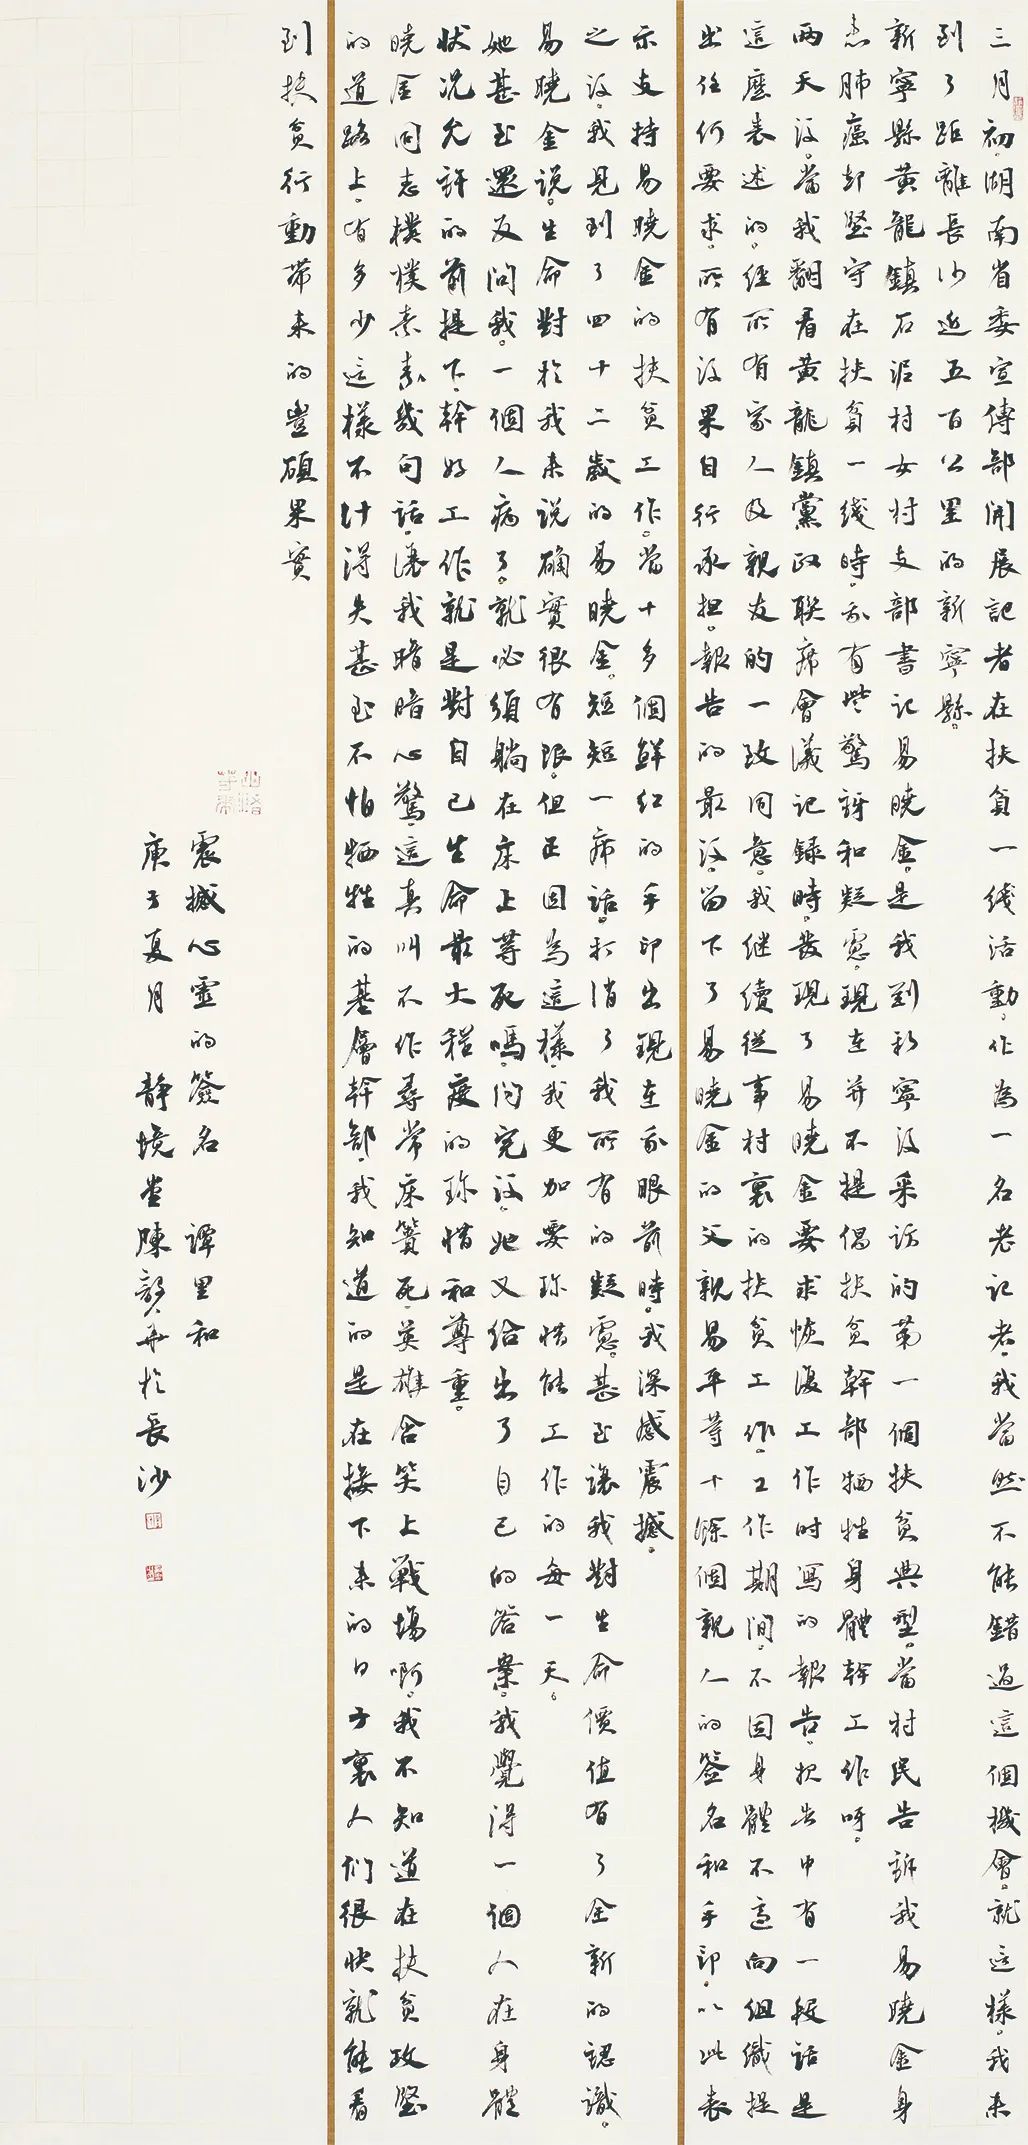 三月初，湖南省委宣傳部開展記者在扶貧一线活動，作為一名老記者，我當然不能錯過這個機會。就這樣，我来
到了距離長沙近五百公里的新寧縣。
新寧縣黃龍鎮石泥村女村支部書記易曉金，是我到新寧後采訪的第一個扶貧典型。當村民告訴我易曉金身
患肺癌却堅守在扶貧一线時，我有些驚訝和疑慮。現在并不提倡扶貧幹部牺牲身體幹工作呀。
两天後。當我翻看黃龍鎮黨政聯席會議記録時。發現了易曉金要求恢復工作时寫的報告，报告中有一段話是
這麽表述的。經所有家人及親友的一致同意。我继續從事村裏的扶贫工作。工作期間。不因身體不適向组織提
出任何要求。所有後果自行承担。報告的最後。留下了易曉金的父親易平等十餘個親人的签名和手印。以此表
示支持易曉金的扶贫工作。當十多個鲜红的手印出現在我眼前時。我深感震撼。
之後。我見到了四十二歲的易曉金。短短一席話。打消了我所有的疑慮。甚至讓我對生命價值有了全新的認識。
易曉金说。生命對於我来说確實很有限。但正因為這樣。我更加要珍惜能工作的每一天。
她甚至還反问我。一個人病了。就必須躺在床上等死嗎。问完後。她又给出了自己的答案。我覺得一個人在身體
状况允許的前提下。幹好工作就是對自己生命最大程度的珍惜和尊重。
曉金同志樸樸素素幾句話。讓我暗暗心驚。這真叫不作尋常床簀死。英雄含笑上戰場啊。我不知道在扶贫攻堅
的道路上。有多少這樣不计得失甚至不怕牺牲的基層幹部。我知道的是在接下来的日子裏人们很快就能看
到扶贫行動带来的豐碩果實
震撼心靈的簽名 譚里和
庚子夏月 静境堂陳毅華於長沙